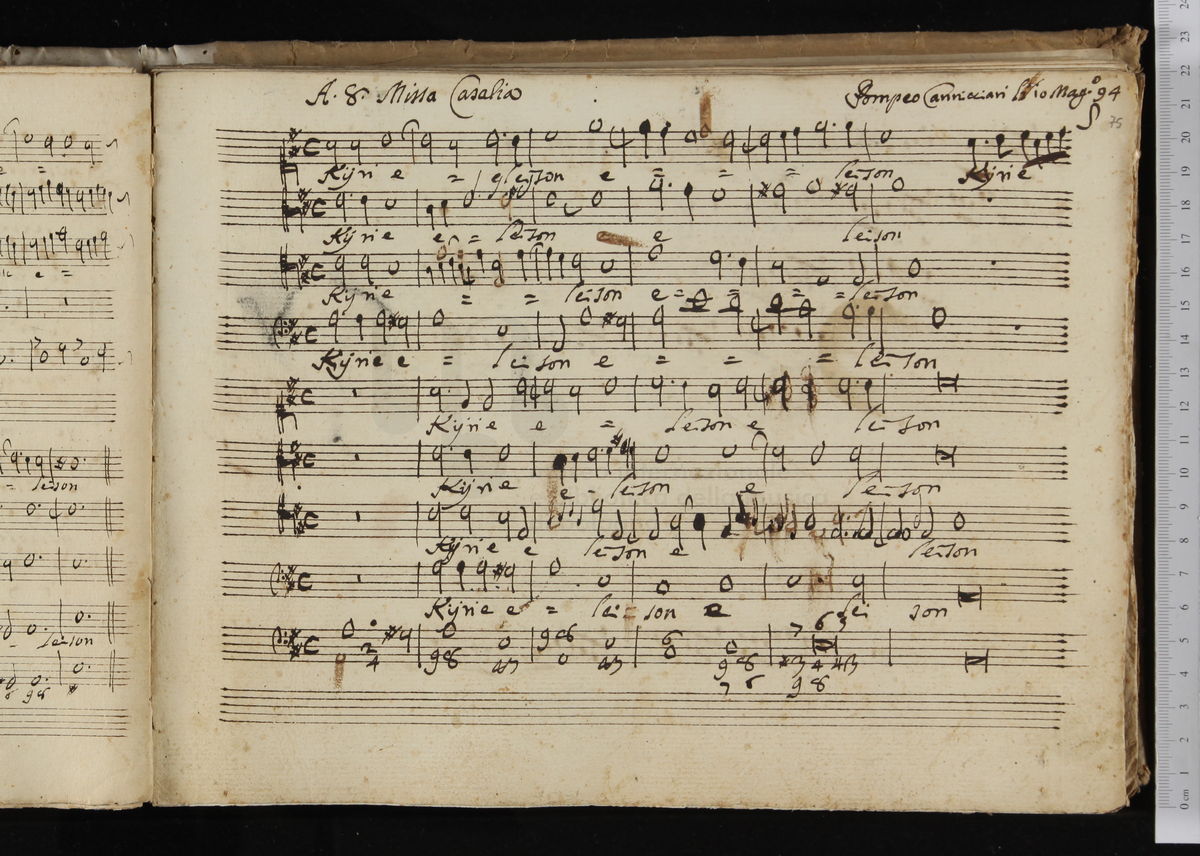 A. 8. Missa Casalia
Pompeo Cannicciari Maggº 94
75
Kyrie e = leison e = = = leison Kyrie
Kyrie e = leison e leison
Kyrie = = leison e = = = = leison
Kyrie e = leison e = = = leison
Kyrie e = leison e leison
Kyrie e = leison e leison
Kyrie e leison e leison
Kyrie e = lei = son e lei son
leison
leison
24
23
22
21
20
19
18
17
16
15
14
13
12
11
10
9
8
7
6
5
4
3
2
1
0 cm